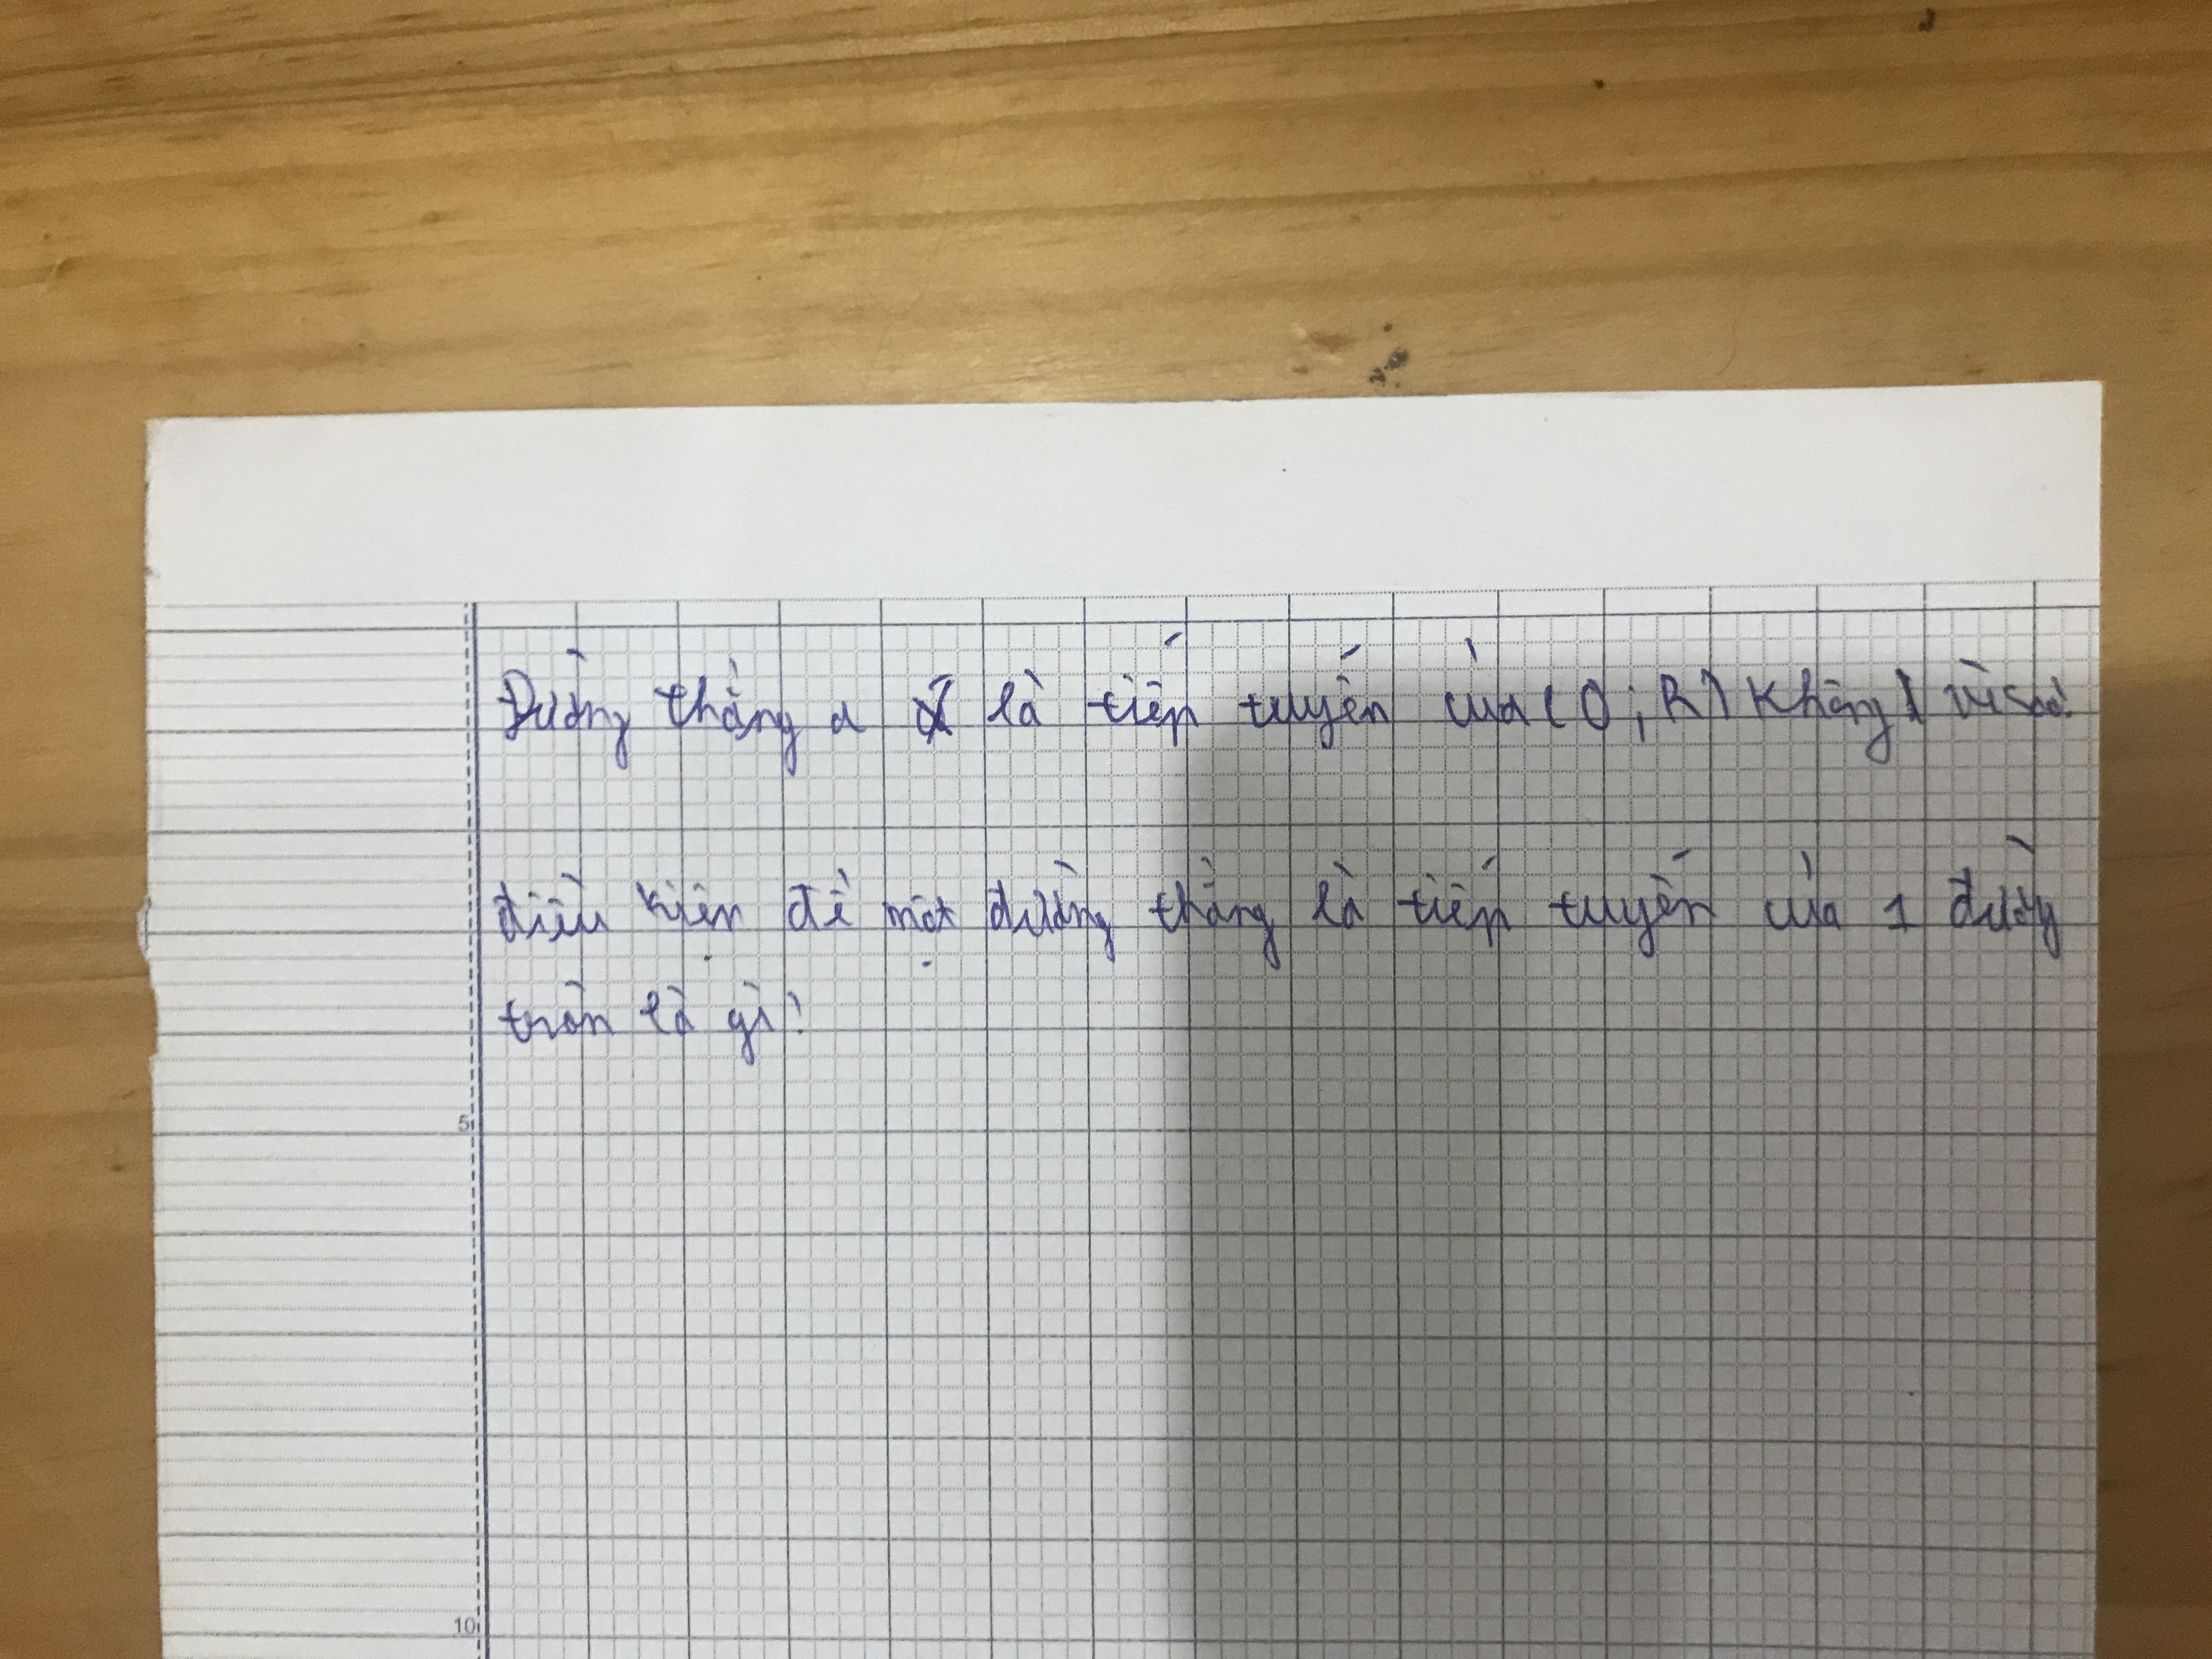 Đường thẳng a là tiếp tuyến của (O; R) không? vì sao?
điều kiện để một đường thẳng là tiếp tuyến của 1 đường
tròn là gì?
5
10